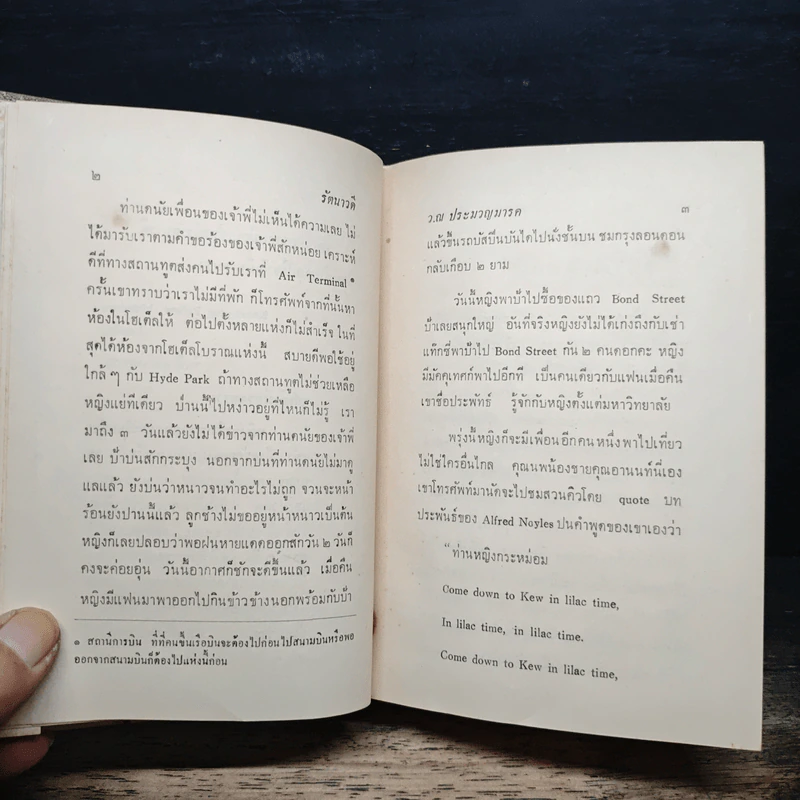 ๒
รัตนาวดี
ท่านดนัยเพื่อนของเจ้าพี่ไม่เห็นได้ความเลย ไม่
ได้มารับเราตามคำขอร้องของเจ้าพี่สักหน่อย เคราะห์
ดีที่ทางสถานทูตส่งคนไปรับเราที่ Air Terminal ๑
ครั้นเขาทราบว่าเราไม่มีที่พัก ก็โทรศัพท์จากที่นั้นหา
ห้องในโฮเต็ลให้ ต่อไปตั้งหลายแห่งก็ไม่สำเร็จ ในที่
สุดได้ห้องจากโฮเต็ลโบราณแห่งนี้ สบายดีพอใช้อยู่
ใกล้ ๆ กับ Hyde Park ถ้าทางสถานทูตไม่ช่วยเหลือ
หญิงแย่ทีเดียว ป่านนี้ไปหง่าวอยู่ที่ไหนก็ไม่รู้ เรา
มาถึง ๓ วันแล้วยังไม่ได้ข่าวจากท่านดนัยของเจ้าพี่
เลย ป้าบ่นสักกระบุง นอกจากบ่นที่ท่านดนัยไม่มาดู
แลแล้ว ยังบ่นว่าหนาวจนทำอะไรไม่ถูก จวนจะหน้า
ร้อนยังปานนี้แล้ว ลูกช้างไม่ขออยู่หน้าหนาวเป็นต้น
หญิงก็เลยปลอบว่าพอฝนหายแดดออกสักวัน ๒ วันก็
คงจะค่อยอุ่น วันนี้อากาศก็ชักจะดีขึ้นแล้ว เมื่อคืน
หญิงมีแฟนมาพาออกไปกินข้าวข้างนอกพร้อมกับป้า
๑ สถานีการบิน ที่ที่คนขึ้นเรือบินจะต้องไปก่อนไปสนามบินหรือพอ
ออกจากสนามบินก็ต้องไปแห่งนี้ก่อน
ว.ณ ประมวญมารค
๓
แล้วขึ้นรถบัสปีนบันไดไปนั่งชั้นบน ชมกรุงลอนดอน
กลับเกือบ ๒ ยาม
วันนี้หญิงพาป้าไปซื้อของแถว Bond Street
ป้าเลยสนุกใหญ่ อันที่จริงหญิงยังไม่ได้เก่งถึงกับเช่า
แท๊กซี่พาป้าไป Bond Street กัน ๒ คนดอกคะ หญิง
มีมัคคุเทศก์พาไปอีกที เป็นคนเดียวกับแฟนเมื่อคืน
เขาชื่อประพัทธ์ รู้จักกับหญิงตั้งแต่มหาวิทยาลัย
พรุ่งนี้หญิงก็จะมีเพื่อนอีกคนหนึ่งพาไปเที่ยว
ไม่ใช่ใครอื่นไกล คุณนพน้องชายคุณอานนท์นี่เอง
เขาโทรศัพท์มานัดจะไปชมสวนคิวโดย quote บท
ประพันธ์ของ Alfred Noyles ปนคำพูดของเขาเองว่า
"ท่านหญิงกระหม่อม
Come down to Kew in lilac time,
In lilac time, in lilac time.
Come down to Kew in lilac time,